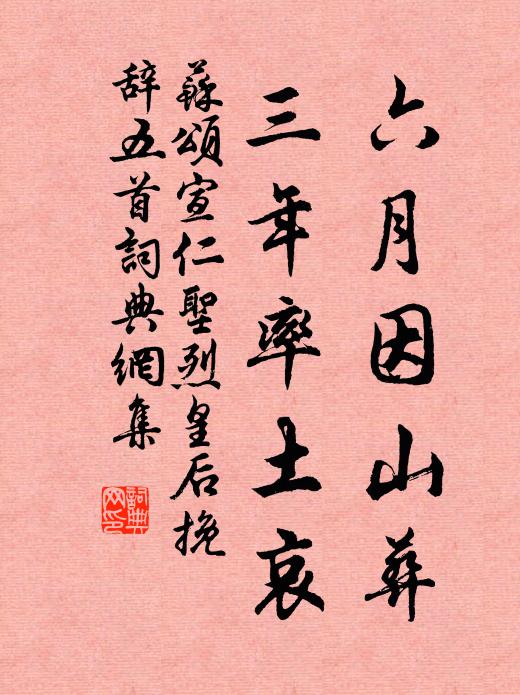 六月因山葬
三年率土哀
蘇頌宣仁聖烈皇后挽
辭五首詞典網集
詞典
网印